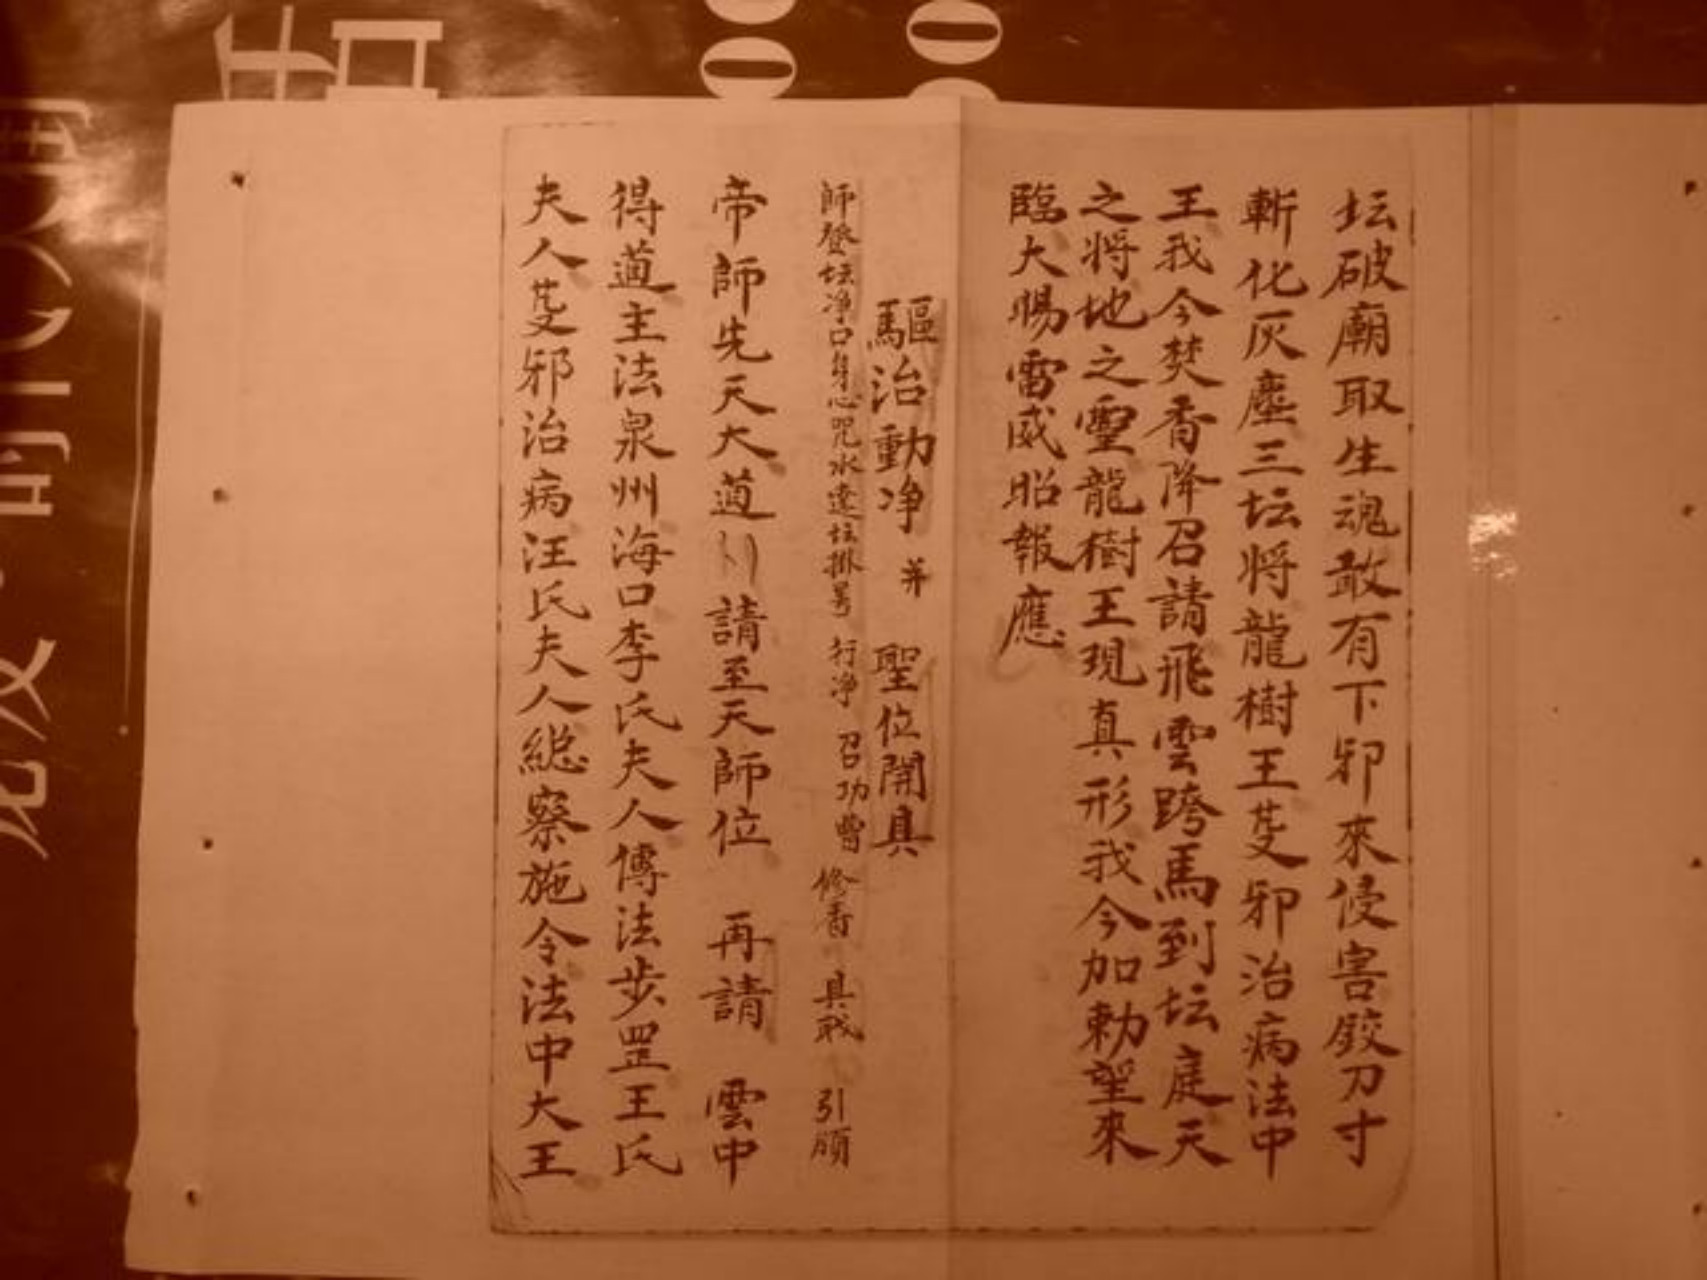 坛破廟取生魂敢有下邪來侵害餃刀寸
斬化灰塵三坛将龍樹王芟邪治病法中
王我今焚香降召請飛雲跨馬到坛庭天
之将地之靈龍樹王現真形我今加勅望來
臨大賜雷威昭報應
驅治動净 并 聖位開真
師登坛净口身心咒水遶坛掛号 行净 召功曹 修香 具戒 引願
帝師先天大道 請至天師位 再請 雲中
得道主法泉州海口李氏夫人傳法步罡王氏
夫人芟邪治病汪氏夫人総察施令法中大王